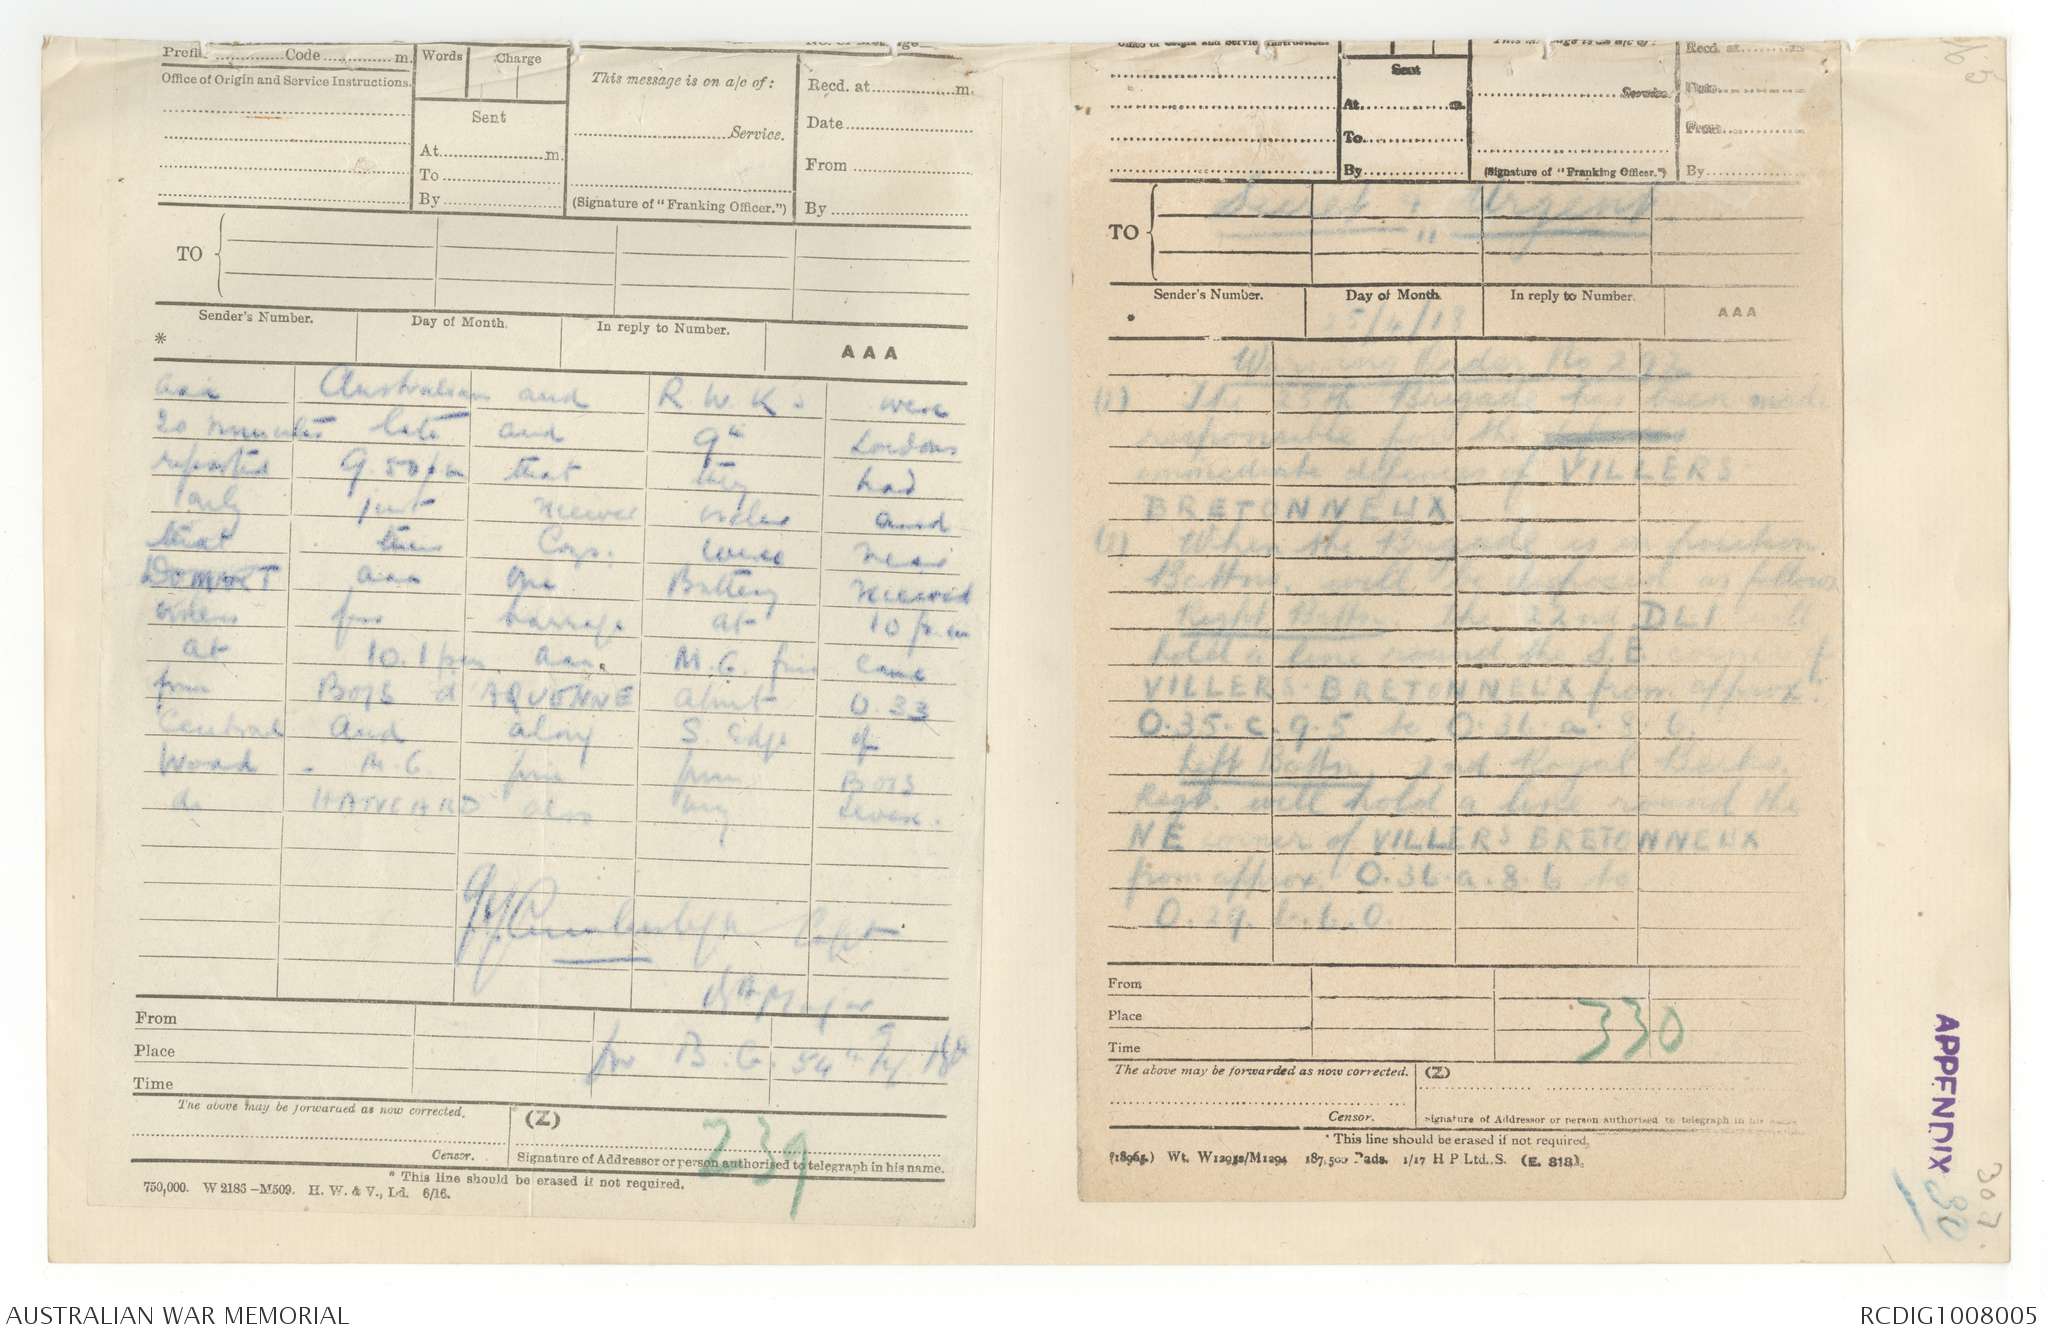 Prefix Code m.
Words
Charge
Office of Origin and Service Instructions.
Sent
At m.
To
By
This message is on a/c of:
Service.
(Signature of "Franking Officer.")
Recd. at m.
Date
From
By
TO
Sender's Number.
Day of Month.
In reply to Number.
AAA
*
aaa Australian and R.W.Ks were
20 minutes late and 9th Londons
reported 9.50 pm that they had
only just received orders and
that their Coys. were near
DOMART aaa One Battery received
orders for barrage at 10 pm
at 10.1 pm. aaa. M.G. fire came
from BOIS d'AQUENNE about O.33
Central and along S. edge of
Wood - M.G. fire from BOIS
de HANGARD also very severe.
Capt
Bde Major
for B.G. 54th
From
Place
Time
The above may be forwarded as now corrected.
(Z)
239
Censor.
Signature of Addressor or person authorised to telegraph in his name.
* This line should be erased if not required.
750,000. W 2185-M509. H. W. & V., Ld. 6/16.
Office of Origin and Service Instructions
This message is on a/c of:
Recd. at m.
Sent
At m.
To
By
Service.
(Signature of "Franking Officer.")
Date
From
By
TO
Secret & Urgent
Sender's Number.
Day of Month
In reply to Number.
AAA
*
25/4/18
Warning Order No 292
(1) The 25th Brigade has been made
responsible for the
immediate defence of VILLERS
BRETONNEUX
(2) When the Brigade is in position
Battns. will be disposed as follows
Right Battn. The 22nd DLI will
hold a line round the S.E corner of
VILLERS-BRETONNEUX from approx.
O.35.c.9.5 to O.36.a.8.6.
Left Battn. 2nd Royal Berks.
Regt. will hold a line round the
NE corner of VILLERS BRETONNEUX
from approx. O.36.a.8.6 to
O.29.b.6.0.
From
Place
Time
330
The above may be forwarded as now corrected.
(Z)
Censor.
Signature of Addressor or person authorised to telegraph in his name
* This line should be erased if not required.
(18965.) Wt. W12952/M1294 187,500 Pads. 1/17 H P Ltd. S. (E. 818).
APPENDIX 30
307.
AUSTRALIAN WAR MEMORIAL
RCDIG1008005